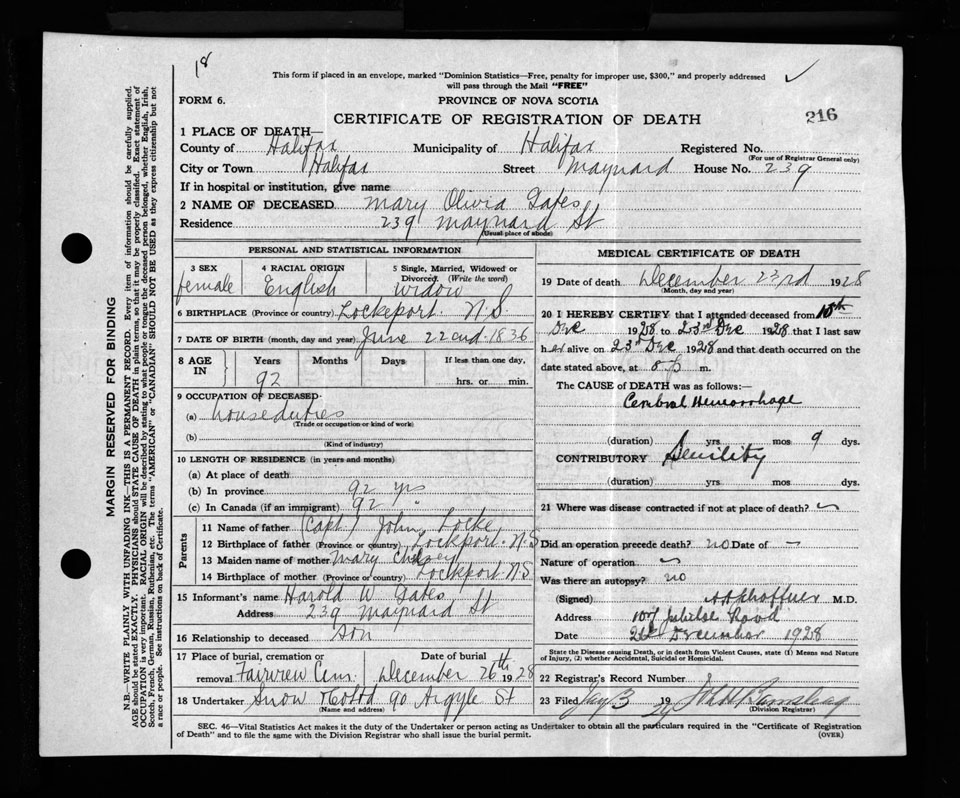 18
This form if placed in an envelope, marked "Dominion Statistics—Free, penalty for improper use, $300," and properly addressed
will pass through the Mail "FREE"
FORM 6.
PROVINCE OF NOVA SCOTIA
216
CERTIFICATE OF REGISTRATION OF DEATH
1 PLACE OF DEATH—
County of Halifax Municipality of Halifax Registered No.
(For use of Registrar General only)
City or Town Halifax Street Maynard House No. 239
If in hospital or institution, give name
2 NAME OF DECEASED Mary Olivia Gates
Residence 239 Maynard St
(Usual place of abode)
PERSONAL AND STATISTICAL INFORMATION
3 SEX 4 RACIAL ORIGIN 5 Single, Married, Widowed or
Divorced. (Write the word)
female English Widow
6 BIRTHPLACE (Province or country) Lockeport. N.S.
7 DATE OF BIRTH (month, day and year) June 22nd 1836
8 AGE IN Years Months Days If less than one day,
92 hrs. or min.
9 OCCUPATION OF DECEASED
(a) house duties
(Trade or occupation or kind of work)
(b)
(Kind of industry)
10 LENGTH OF RESIDENCE (in years and months)
(a) At place of death
(b) In province 92 yrs
(c) In Canada (if an immigrant) 92 "
Parents
11 Name of father (Capt) John Locke
12 Birthplace of father (Province or country) Lockport. N.S
13 Maiden name of mother Mary
14 Birthplace of mother (Province or country) Lockeport N.S
15 Informant's name Harold W Gates
Address 239 Maynard St
16 Relationship to deceased Son
17 Place of burial, cremation or Date of burial
removal Fairview Cem. December 26th 1928
18 Undertaker Snow & Co Ltd 90 Argyle St
(Name and address)
MEDICAL CERTIFICATE OF DEATH
19 Date of death December 23rd 1928
(Month, day and year)
20 I HEREBY CERTIFY that I attended deceased from 15th
Dec 1928 to 23rd Dec 1928 that I last saw
her alive on 23rd Dec 1928 and that death occurred on the
date stated above, at m.
The CAUSE of DEATH was as follows:—
Cerebral Hemorrhage
(duration) yrs mos 9 dys.
CONTRIBUTORY Senility
(duration) yrs. mos. dys.
21 Where was disease contracted if not at place of death?
Did an operation precede death? no Date of —
Nature of operation
Was there an autopsy? no
(Signed) M.D.
Address 107 Jubilee Road
Date December 1928
State the Disease causing Death, or in death from Violent Causes, state (1) Means and Nature
of Injury, (2) whether Accidental, Suicidal or Homicidal.
22 Registrar's Record Number
23 Filed Jany 3 1929
(Division Registrar)
SEC. 46—Vital Statistics Act makes it the duty of the Undertaker or person acting as Undertaker to obtain all the particulars required in the "Certificate of Registration
of Death" and to file the same with the Division Registrar who shall issue the burial permit. (OVER)
MARGIN RESERVED FOR BINDING
N.B.—WRITE PLAINLY WITH UNFADING INK—THIS IS A PERMANENT RECORD. Every item of information should be carefully supplied.
AGE should be stated EXACTLY. PHYSICIANS should STATE CAUSE OF DEATH in plain terms, so that it may be properly classified. Exact statement of
OCCUPATION is very important. RACIAL ORIGIN will be described by stating to what people or tongue the deceased person belonged, whether English, Irish,
Scotch, French, German, Russian, Ruthenian, etc. The terms "AMERICAN" or "CANADIAN" SHOULD NOT BE USED as they express citizenship but not
a race or people. See instructions on back of Certificate.